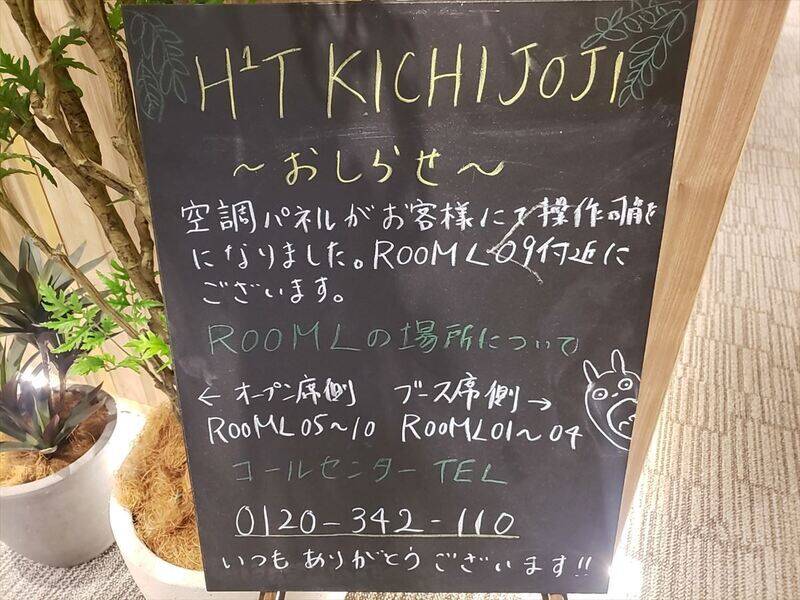 H¹T KICHIJOJI
～おしらせ～
空調パネルがお客様にて操作可能
になりました。ROOM L 09付近に
ございます。
ROOM Lの場所について
← オープン席側 ブース席側 →
ROOM L 05～10 ROOM L 01～04
コールセンター TEL
0120-342-110
いつもありがとうございます!!